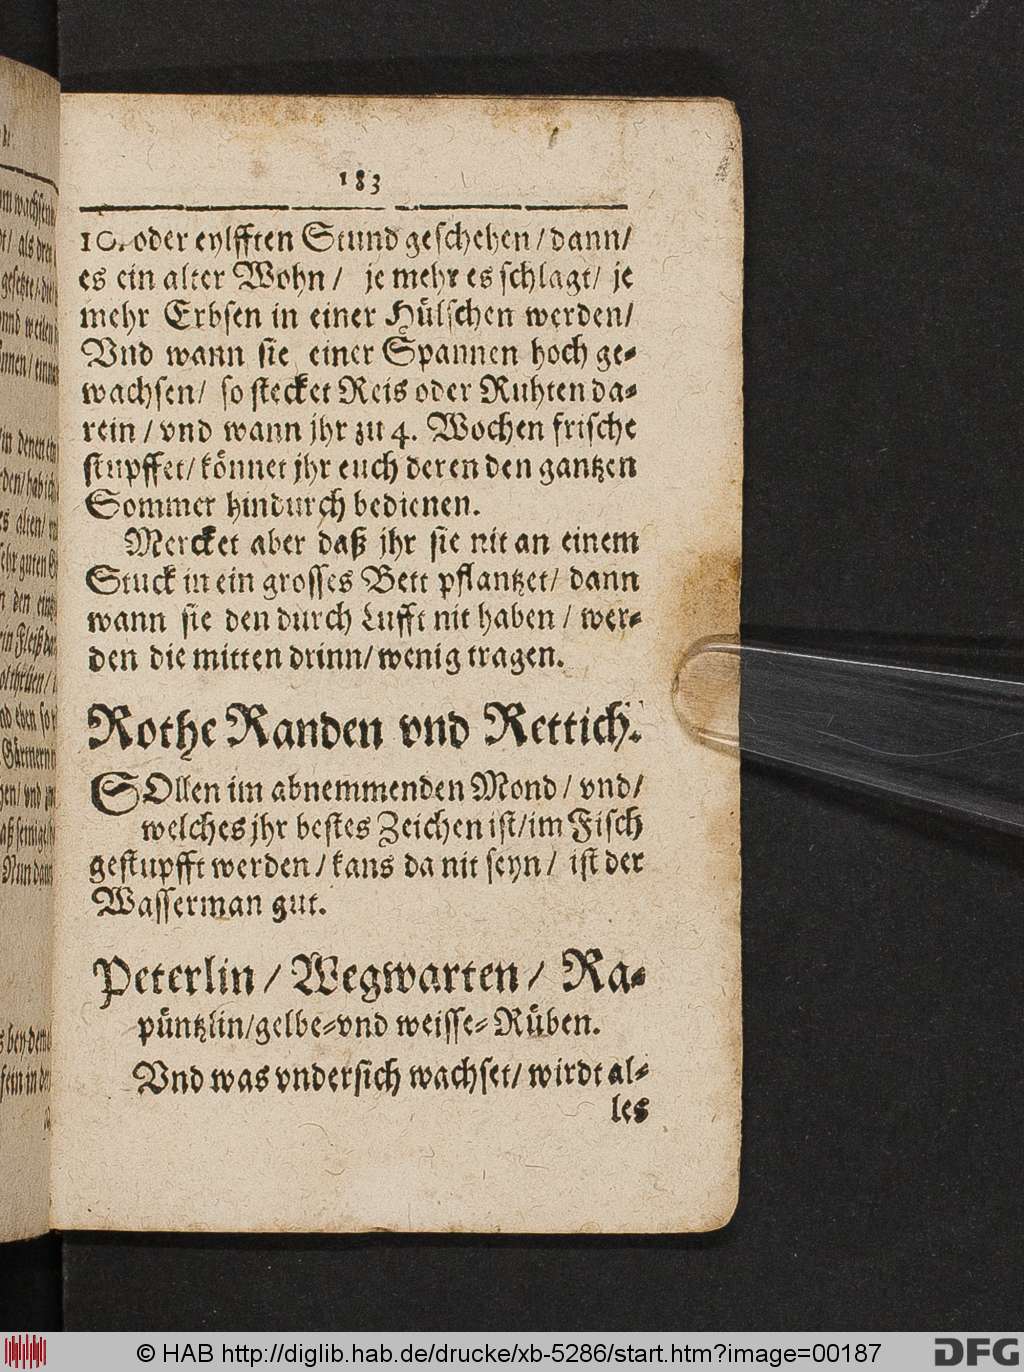 183
10. oder eylfften Stund geschehen / dann/
es ein alter Wohn / je mehr es schlagt/ je
mehr Erbsen in einer Hülschen werden/
Vnd wann sie einer Spannen hoch ge-
wachsen/ so stecket Reis oder Ruhten da-
rein / vnd wann jhr zu 4. Wochen frische
stupffet/ könnet jhr euch deren den gantzen
Sommer hindurch bedienen.
Mercket aber daß jhr sie nit an einem
Stuck in ein grosses Bett pflantzet/ dann
wann sie den durch Lufft nit haben / wer-
den die mitten drinn/ wenig tragen.
Rothe Randen vnd Rettich.
SOllen im abnemmenden Mond / vnd/
welches jhr bestes Zeichen ist/ im Fisch
gestupfft werden / kans da nit seyn / ist der
Wasserman gut.
Peterlin / Wegwarten / Ra-
püntzlin/ gelbe- vnd weisse- Rüben.
Vnd was vndersich wachset/ wirdt al-
les
© HAB http://diglib.hab.de/drucke/xb-5286/start.htm?image=00187
DFG